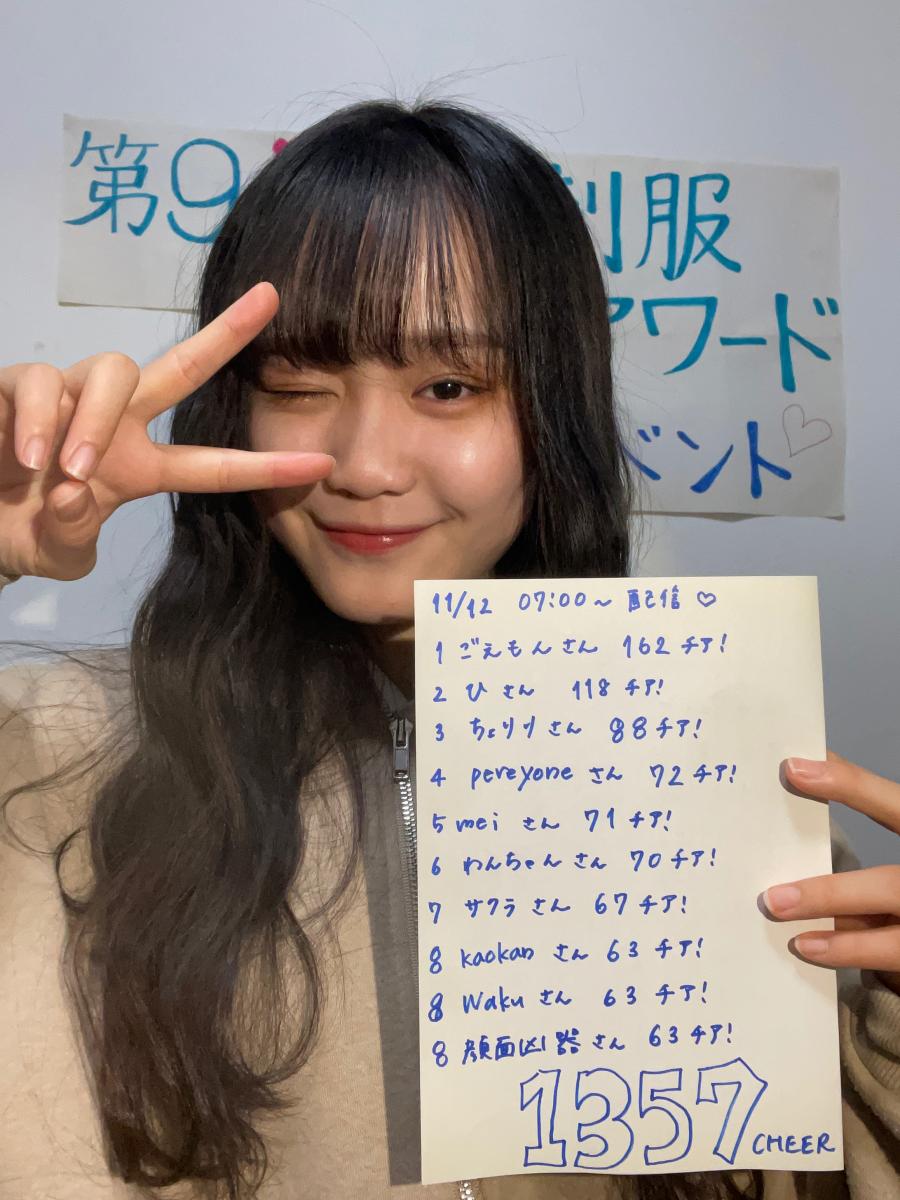 第9
服
アワード
ベント♡
11/12 07:00~ 配信 ♡
1 ごえもんさん 162 チア!
2 ひ さん 118 チア!
3 ちょりり さん 88 チア!
4 pereyone さん 72 チア!
5 mei さん 71 チア!
6 わんちゃん さん 70 チア!
7 サクラ さん 67 チア!
8 kaokan さん 63 チア!
8 Waku さん 63 チア!
8 顔面凶器 さん 63 チア!
1357 CHEER